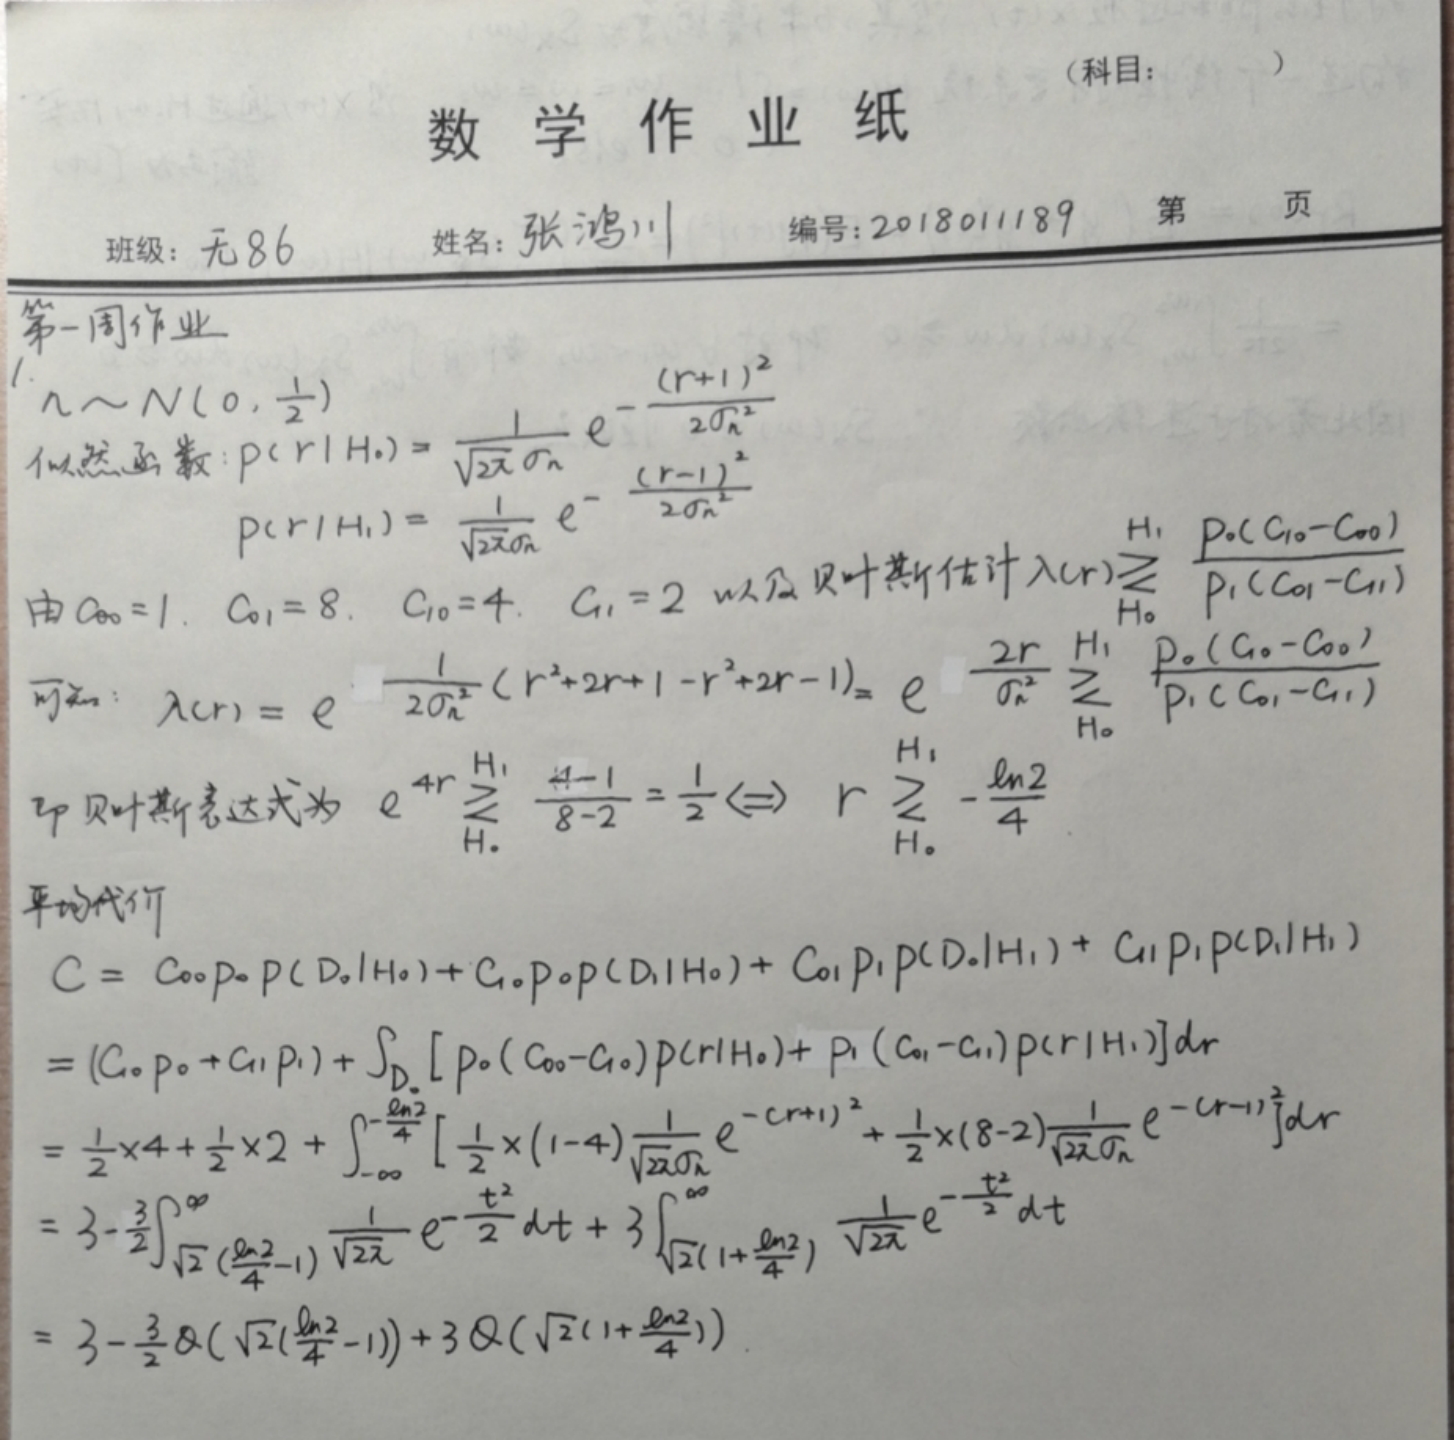 （科目： ）
数 学 作 业 纸
班级：无86 姓名：张鸿川 编号：2018011189 第 页
第一周作业
1.
n～N(0, 1/2)
似然函数：p(r|H₀) = 1/(√2π σₙ) e^(-(r+1)²/(2σₙ²))
p(r|H₁) = 1/(√2π σₙ) e^(-(r-1)²/(2σₙ²))
由 C₀₀=1. C₀₁=8. C₁₀=4. C₁₁=2 以及贝叶斯估计 λ(r) ≷ (H₁/H₀) p₀(C₁₀-C₀₀)/(p₁(C₀₁-C₁₁))
可知：λ(r) = e^(1/(2σₙ²) (r²+2r+1-r²+2r-1)) = e^(2r/σₙ²) ≷ (H₁/H₀) p₀(C₁₀-C₀₀)/(p₁(C₀₁-C₁₁))
即贝叶斯表达式为 e^(4r) ≷ (H₁/H₀) (4-1)/(8-2) = 1/2 ⟺ r ≷ (H₁/H₀) -ln2/4
平均代价
C = C₀₀p₀p(D₀|H₀) + C₁₀p₀p(D₁|H₀) + C₀₁p₁p(D₀|H₁) + C₁₁p₁p(D₁|H₁)
= (C₁₀p₀+C₁₁p₁) + ∫_D₀ [p₀(C₀₀-C₁₀)p(r|H₀) + p₁(C₀₁-C₁₁)p(r|H₁)]dr
= 1/2×4 + 1/2×2 + ∫_(-∞)^(-ln2/4) [1/2×(1-4) 1/(√2π σₙ) e^(-(r+1)²) + 1/2×(8-2) 1/(√2π σₙ) e^(-(r-1)²)]dr
= 3 - 3/2 ∫_(√2(ln2/4-1))^∞ 1/√2π e^(-t²/2) dt + 3 ∫_(√2(1+ln2/4))^∞ 1/√2π e^(-t²/2) dt
= 3 - 3/2 Q(√2(ln2/4-1)) + 3Q(√2(1+ln2/4)).